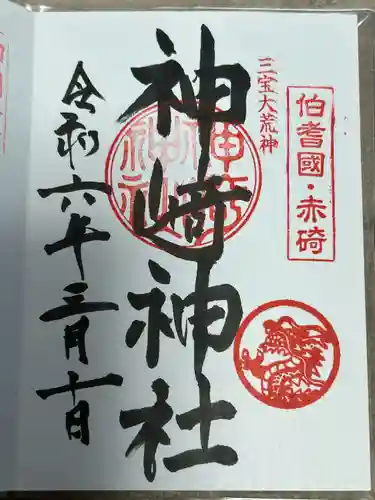 伯耆國・赤碕
三宝大荒神
神﨑神社
神﨑神社
令和六年三月十日